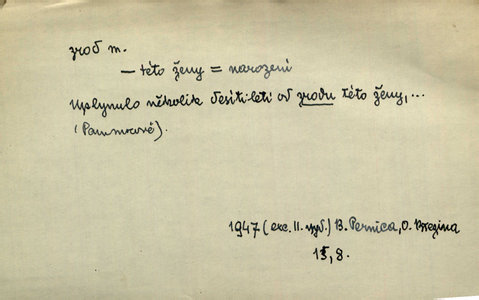 zrod m.
— této ženy = narození
Uplynulo několik desítiletí od zrodu této ženy,...
(Pammrové).
1947 (exc. II. vyd.) B. Pernica, O. Březina
15, 8.